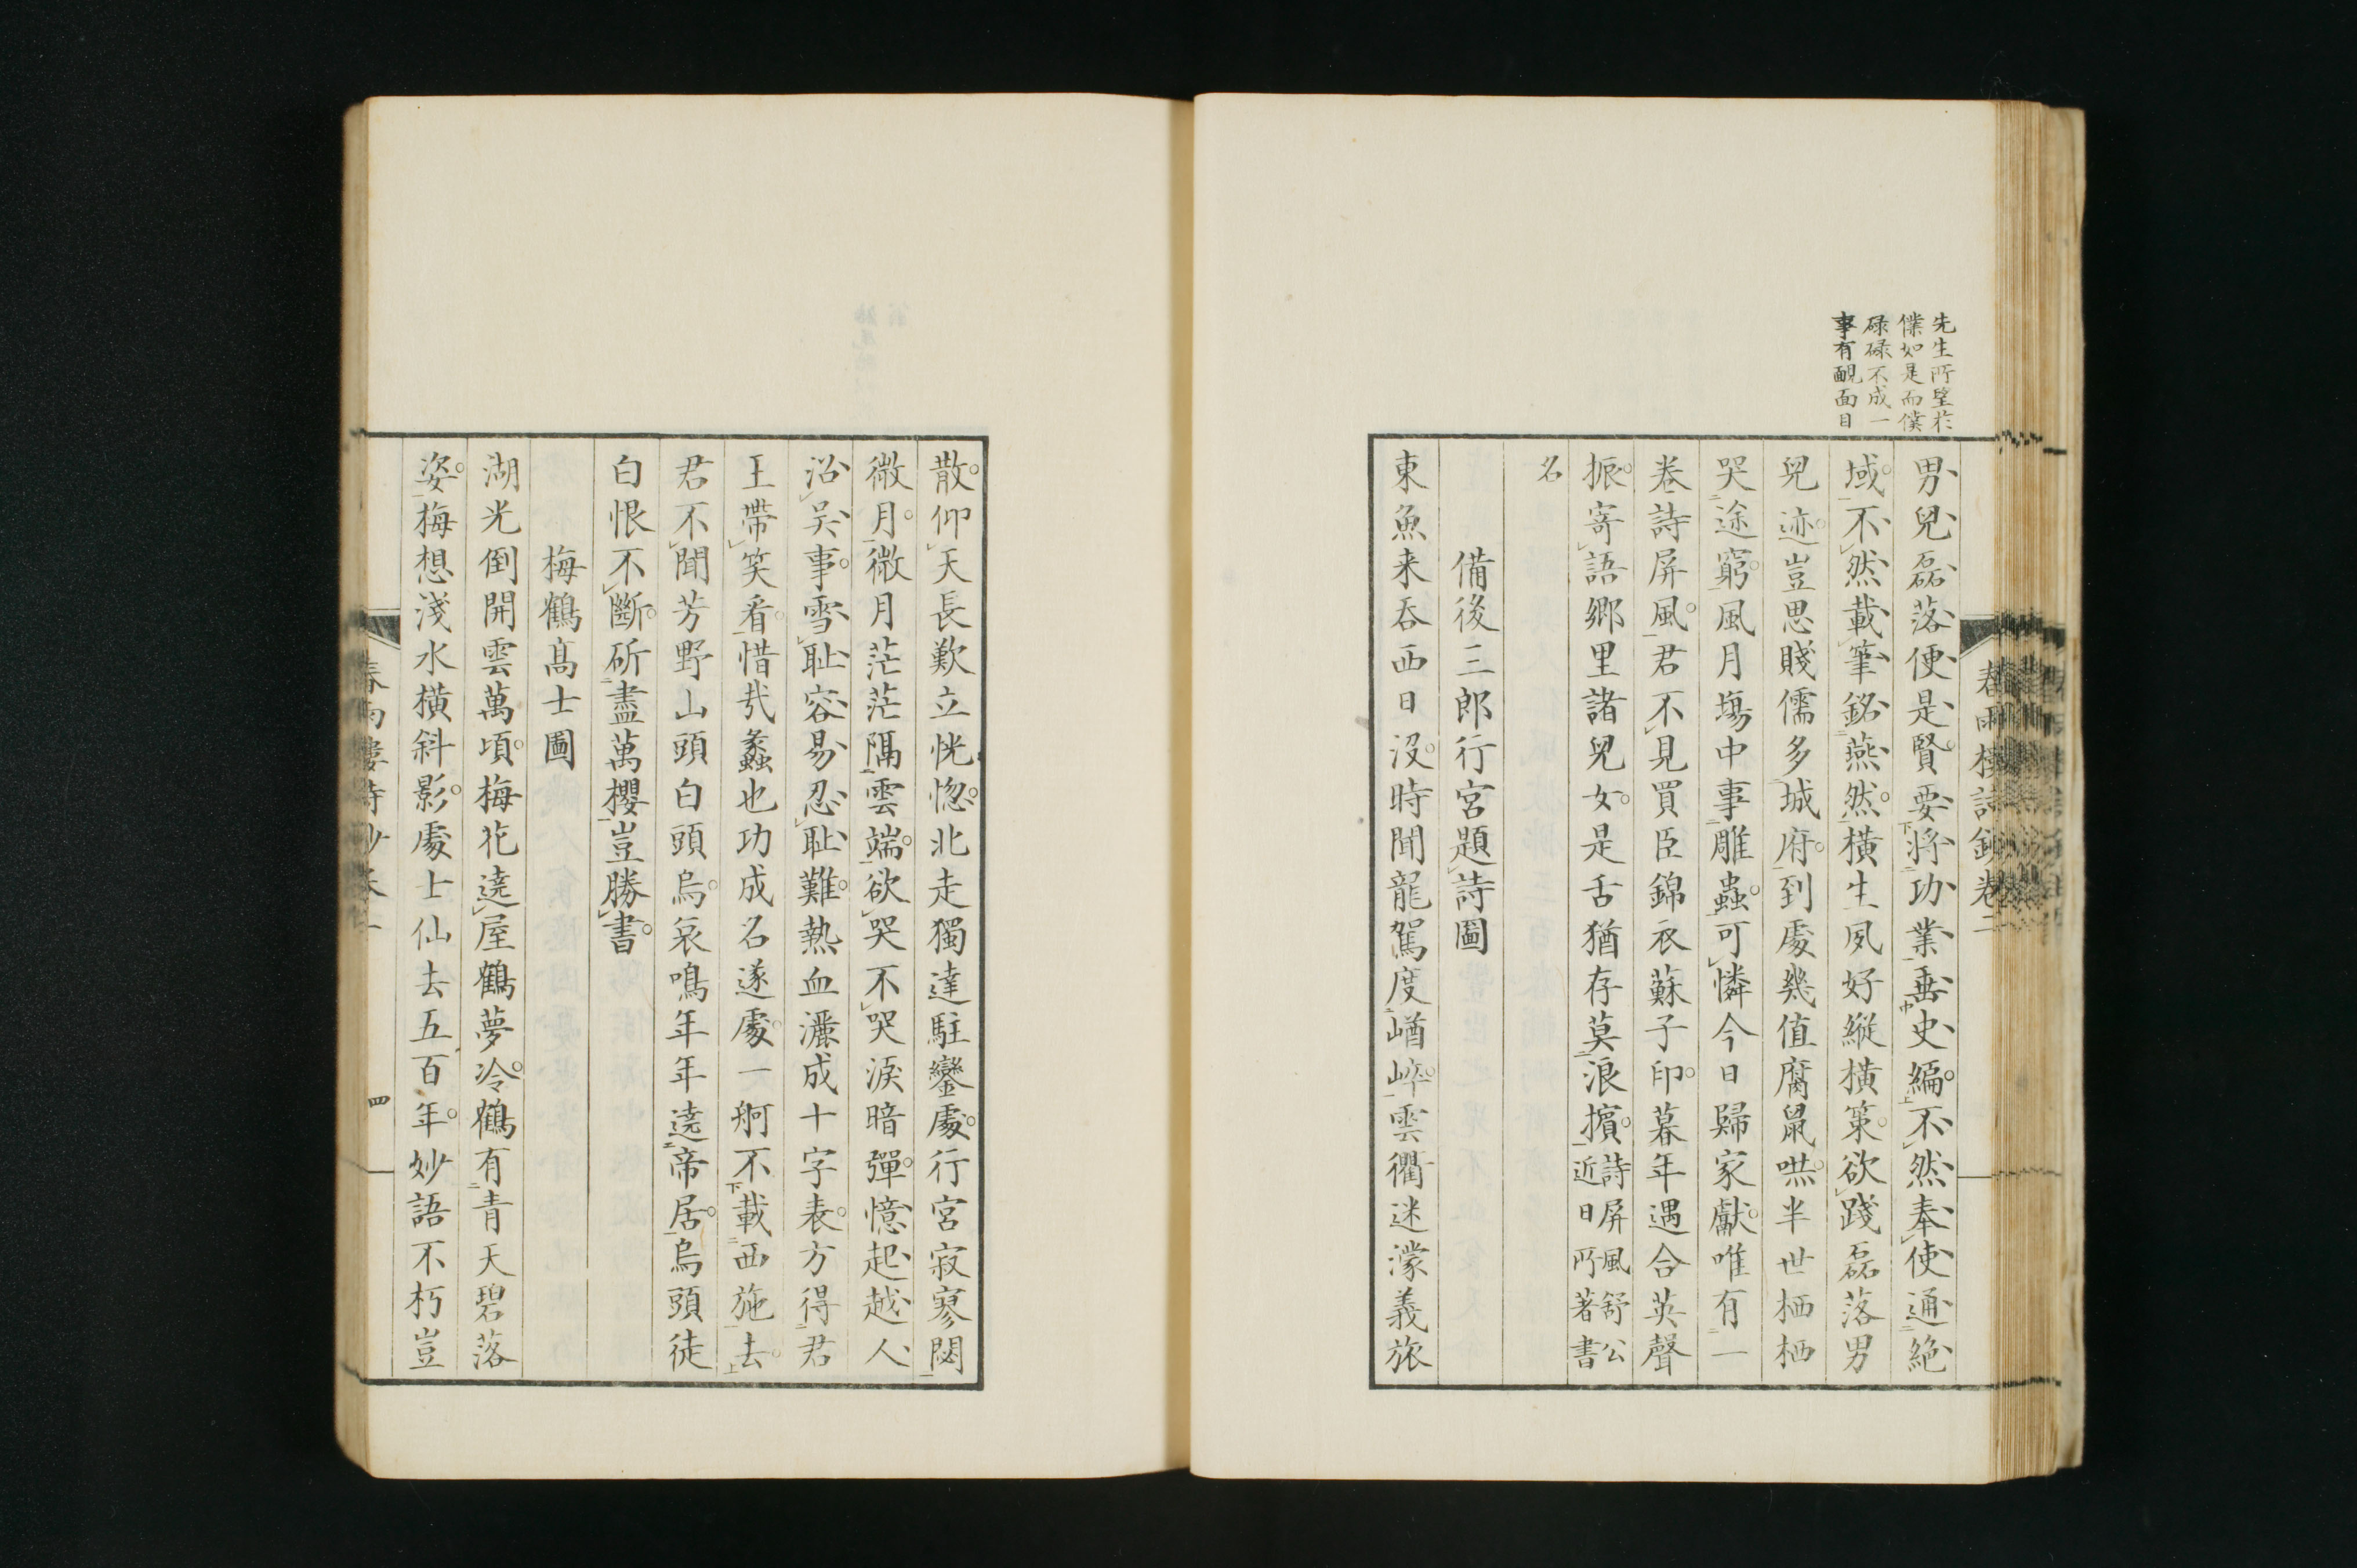 先生所望於
僕如是而僕
碌碌不成一
事有靦面目
春雨樓詩鈔卷二
男兒磊落便是賢要將功業垂史編不然奉使通絶
域不然載筆銘燕然橫生夙好縱橫策欲踐磊落男
兒迹豈思賤儒多城府到處幾值腐鼠哧半世栖栖
哭途窮風月塲中事雕蟲可憐今日歸家獻唯有一
卷詩屏風君不見買臣錦衣蘇子印暮年遇合英聲
振寄語鄉里諸兒女是舌猶存莫浪擯詩屏風舒公
近日所著書
名
備後三郎行宮題詩圖
東魚来吞西日没時聞龍駕度崷崒雲衢迷濛義旅
散仰天長歎立恍惚北走獨達駐鑾處行宮寂寥閟
微月微月茫茫隔雲端欲哭不哭淚暗彈憶起越人
沿吳事雪耻容易忍耻難熱血灑成十字表方得君
王帶笑看惜哉蠡也功成名遂處一舸不載西施去
君不聞芳野山頭白頭烏哀鳴年年遶帝居烏頭徒
白恨不斷斫盡萬櫻豈勝書
梅鶴高士圖
湖光倒開雲萬頃梅花遶屋鶴夢冷鶴有青天碧落
姿梅想淺水橫斜影處士仙去五百年妙語不朽豈
春雨樓詩鈔卷二
四